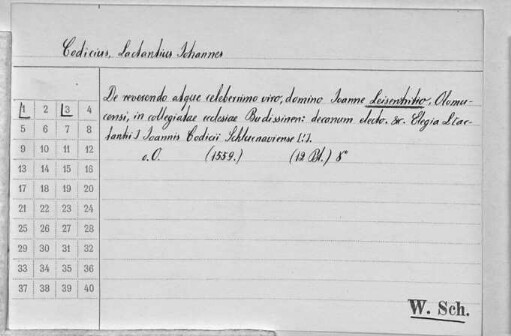 Codicius, Lactantius Johannes
De reverendo atque celeberrimo viro, domino Joanne Leisentritio, Olomu-
censi, in collegiatae ecclesiae Budissinen: decanum electo. &c. Elegia L[ac-
tantii] Joannis Codicii Schlucnaviense [:].
o.O. (1559.) (12 Bl.) 8°
1 2 3 4
5 6 7 8
9 10 11 12
13 14 15 16
17 18 19 20
21 22 23 24
25 26 27 28
29 30 31 32
33 34 35 36
37 38 39 40
W. Sch.